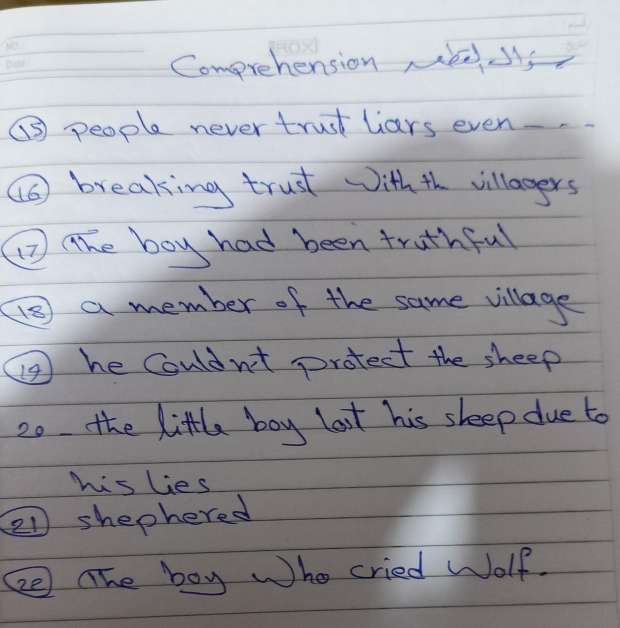 Comprehension سؤال القطعه
15 people never trust liars even - - -
16 breaking trust with th villagers
17 The boy had been truthful
18 a member of the same village
19 he Couldn't protect the sheep
20 - the little boy lost his sheep due to
his lies
21 shephered
22 The boy Who cried Wolf.